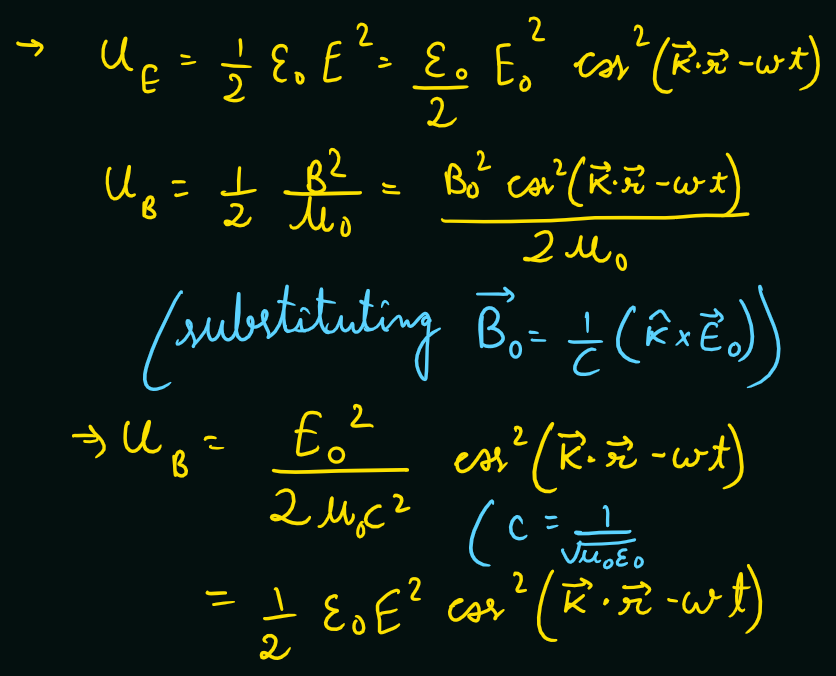 → U_E = 1/2 ε₀ E² = ε₀/2 E₀² cos²(k⃗·r⃗ - ωt)
U_B = 1/2 B²/μ₀ = B₀² cos²(k⃗·r⃗ - ωt) / 2μ₀
(substituting B⃗₀ = 1/c (k̂ × E⃗₀))
⇒ U_B = E₀² / 2μ₀c² cos²(k⃗·r⃗ - ωt)
(c = 1/√μ₀ε₀
= 1/2 ε₀E² cos²(k⃗·r⃗ - ωt)